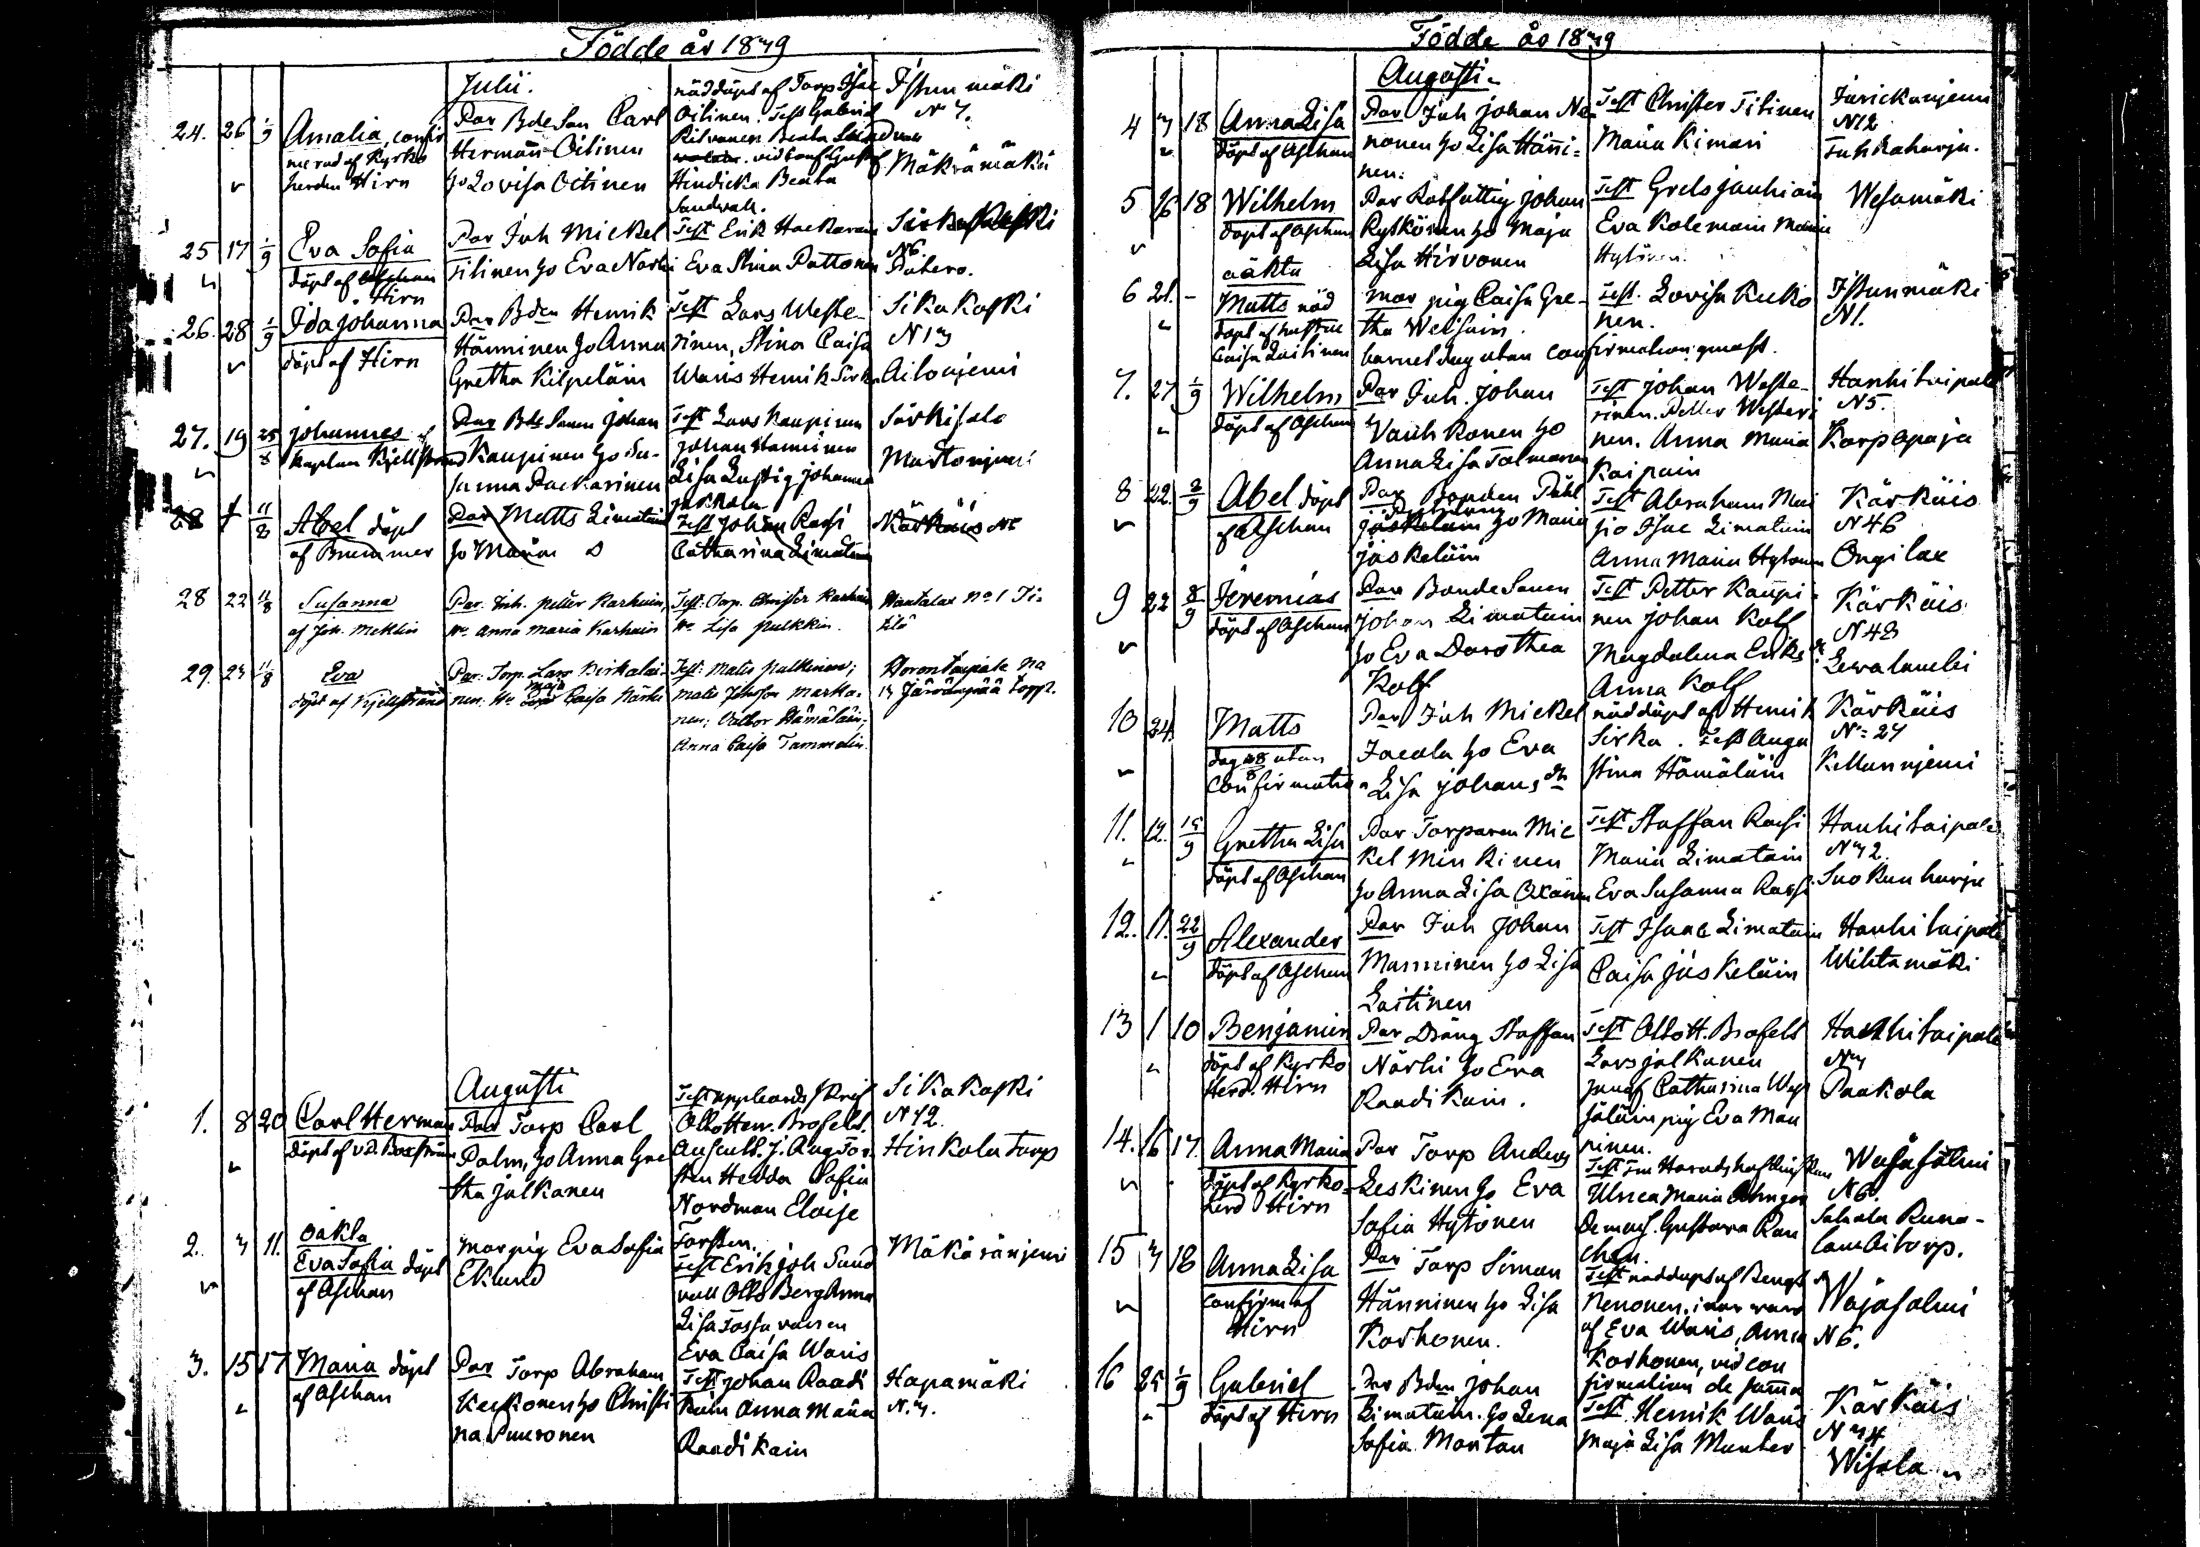 Födde år 1849
Julii.
24. 26 1/9 Amalia, confir
merad af Kyrko
herden Hirn
Par BdeSon Carl
Hermann Oitinen
ho Lovisa Oitinen
nöddöpt af Torp Isac
Oitinen. Test Gabriel
Hindrika Beata
Sandvall.
Istunmäki
N 7.
Mäkrämäki
25 17 1/9 Eva Sofia
döpt af
Hirn
Par Inh Mickel
Titinen ho Eva Närhi
Test Erik Hackarain
Eva Stina Pattonen
N6.
26. 28 1/9 Ida Johanna
döpt af Hirn
Par Bden Henrik
Hänninen ho Anna
Gretha Kilpeläin
Test Lars Weste-
rinen, Stina Caisa
Waris Henrik Sirka
Sikakoski
N 17
Ailonjemi
27. 19 25/8 Johannes af
Kaplan Kjellstrand
Par BdeSonen Johan
Kaupinen ho Su-
sanna Packarinen
Test Lars Kaupinen
Johan Hänninen
Lisa Lustig Johanna
Jalkala
Särkisalo
Mustonjemi
28 7 11/8 Abel döpt
af Brummer
Par Matts Limatain
ho Maria D
Test Johan Rassi
Catharina Limatain
Kärkäis No
28 22 11/8 Susanna
af Joh. Meklin
Par. Inh. Petter Karhuin,
Hu. Anna Maria Karhuin
Test: Torp. Christer Karhuin
Hu Lisa Pulkkin.
Hantalax No 1 Ti-
tilä
29. 27 11/8 Eva
döpt af Kjellstrand
Par: Torp. Lars Kirkaläi-
nen. Hu Maja Caisa Närhi
Test: Matts Pulkkinen;
Matts Marka-
nen; Valbor Hämäläin;
Anna Caisa Tammelin.
Horontaipale No
17 Järvänpää torp.
Augusti
1. 8 20 Carl Herman
döpt af v.P. Boxström
Par Torp Carl
Palm, ho Anna Gre
tha Jalkanen
Test uppbörds Skrif
Otto Hen. Brofelt.
Auscult. J. Aug Tor-
sten Hedda Sofia
Nordman Eloise
Torsten.
Sikakoski
N 12.
Hinkola Torp
2. 7 11. oäkta
Eva Sofia döpt
af Aschan
Mor pig Eva Sofia
Eklund
Test Erik Joh Sund
vall Otto Berg Anna
Lisa Tossavainen
Eva Caisa Waris
Mäkäränjemi
3. 15 17 Maria döpt
af Aschan
Par Torp Abraham
Keskonen ho Christi
na Puuronen
Test Johan Raadi
kain Anna Maria
Raadikain
Hapamäki
N. 7.
Födde år 1849
Augusti.
4 7 18 Anna Lisa
döpt af Aschan
Par Inh Johan No-
nonen ho Lisa Hänni-
nen.
Test Christer Titinen
Maria Kimari
N12
Tuhkaharju.
5 16 18 Wilhelm
döpt af Aschan
Par Rotfattig Johan
Rytkönen ho Maja
Lisa Hirvonen
Test Grels Jauhiain
Eva Kolemain Maria
Hytönen.
Wesamäki
6 21. - oäkta
Matts nöd
döpt af hustru
Caisa Laitinen
Mor pig Caisa Gre-
tha Weisain.
barnet dog utan confirmation
Test. Lovisa Kuko
nen.
Istunmäki
N1.
7. 27 1/9 Wilhelm
döpt af Aschan
Par Inh. Johan
Vanhkonen ho
Anna Lisa Tolmanen
Test Johan Weste-
rinen. Petter Westeri
nen. Anna Maria
Kaipain
Hanhitaipale
N5.
Korpapaja
8 22. 2/9 Abel döpt
af Aschan
Par Bonden Påhl
ho Maria
Jäskeläin
Test Abraham Mai
jo Isac Limatain
Anna Maria Hytönen
Kärkäis
N 46
Ongilax
9 22 8/9 Jeremias
döpt af Aschan
Par BondeSonen
Johan Limatain
ho Eva Dorothea
Kolf
Test Petter Kaupi-
nen Johan Kolf
Magdalena Eriks dr
Anna Kolf
Kärkäis
N 43
10 24. Matts
dog 28/8 utan
Confirmation
Par Inh Mickel
Jacola ho Eva
Lisa Johans dr
nöddöpt af Henrik
Sirka. Test Augu
stina Hämäläin
Kärkäis
No: 27
Kellannjemi
11. 12. 15/9 Gretha Lisa
döpt af Aschan
Par Torparen Mic
kel Minkinen
ho Anna Lisa Oxanen
Test Staffan Rassi
Maria Limatain
Eva Susanna Rassi
Hanhitaipale
N 12.
Suokunharju
12. 11. 22/9 Alexander
döpt af Aschan
Par Inh Johan
Manninen ho Lisa
Laitinen
Test Isaac Limatain
Caisa Jäskeläin
Hanhitaipale
Wihtamäki
13 1 10 Benjamin
döpt af Kyrko
Herd. Hirn
Par Dräng Staffan
Närhi ho Eva
Raadikain.
Test Otto H. Brofelt
Lars Jalkanen
Catharina Wes
jäläin pig Eva Man
ninen.
Hanhitaipale
N7
Paakola
14. 16 17. Anna Maria
döpt af Kyrko-
herd Hirn
Par Torp Anders
Leskinen ho Eva
Sofia Hytönen
Test Fru Häradshöfdingskan
Ulrica Maria
Demois. Gustava Ran
chen.
Wäjäsalmi
N6.
15 7 18 Anna Lisa
confirm af
Hirn
Par Torp Simon
Hänninen ho Lisa
Korhonen.
Test nöddöpt af Bengt
Nenonen,
af Eva Waris, Anna
Korhonen, vid con
firmation de samma
Wäjäsalmi
N6.
16 25 1/9 Gabriel
döpt af Hirn
Par Bden Johan
Limatain. ho Lena
Sofia Montan
Test. Henrik Waris
Maja Lisa Munter
Kärkäis
N 44
Wisala